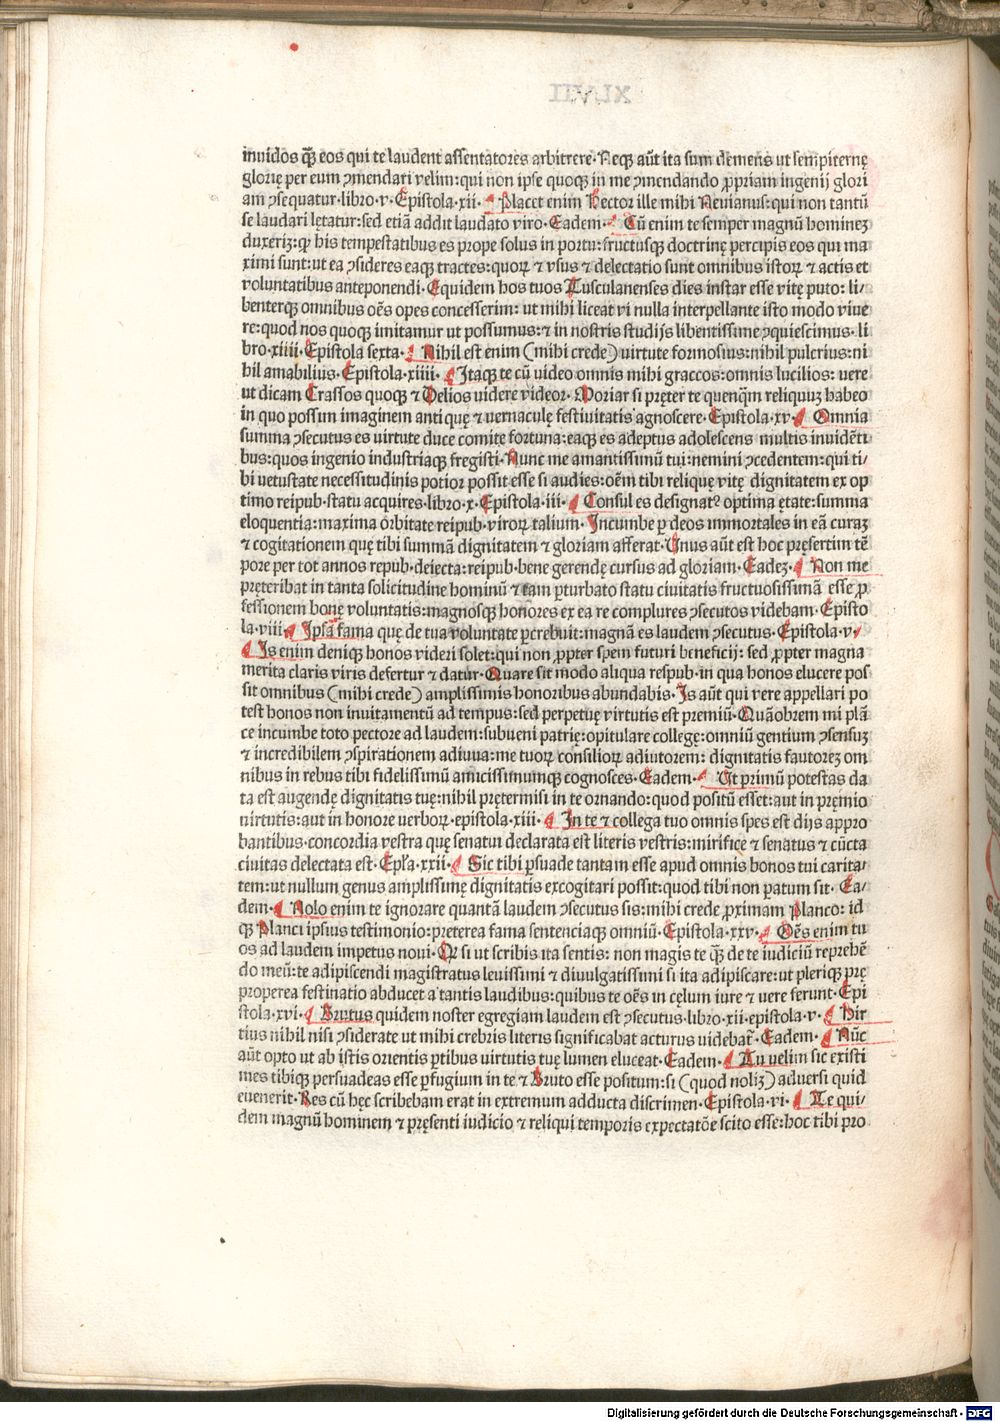 inuidos q̃ꝫ eos qui te laudent assentatores arbitrere·Neqꝫ aũt ita sum demens ut sempiternę
glorię per eum ꝯmendari velim:qui non ipse quoqꝫ in me ꝯmendando ꝓpriam ingenij glori
am ꝯsequatur·libro·v·Epistola·xii· Placet enim Hector ille mihi Neuianus:qui non tantũ
se laudari lętatur:sed etiã addit laudato viro·Eadem· Cũ enim te semper magnũ hominez
duxeriz:qꝫ his tempestatibus es prope solus in portu:fructusqꝫ doctrinę percipis eos qui ma
ximi sunt:ut ea ꝯsideres eaqꝫ tractes:quoꝝ ⁊ vsus ⁊ delectatio sunt omnibus istoꝝ ⁊ actis et
voluntatibus anteponendi·Equidem hos tuos Tusculanenses dies instar esse vitę puto:li/
benterqꝫ omnibus oẽs opes concesserim:ut mihi liceat vi nulla interpellante isto modo viue
re:quod nos quoqꝫ imitamur ut possumus:⁊ in nostris studijs libentissime ꝯquiescimus·li
bro·xiiii·Epistola sexta· Nihil est enim (mihi crede) virtute formosius:nihil pulcrius:ni
hil amabilius·Epistola·xiiii· Itaqꝫ te cũ video omnis mihi graccos:omnis lucilios:vere
ut dicam Crassos quoqꝫ ⁊ Lelios videre videor·Moriar si pręter te quenq̃m reliquuz habeo
in quo possum imaginem antiquę ⁊ vernaculę festiuitatis agnoscere·Epistola·xv· Omnia
summa ꝯsecutus es virtute duce comite fortuna:eaqꝫ es adeptus adolescens multis inuidẽti
bus:quos ingenio industriaqꝫ fregisti·Nunc me amantissimũ tui:nemini ꝯcedentem:qui ti/
bi vetustate necessitudinis potior possit esse si audies:oẽm tibi relique vitę dignitatem ex op
timo reipub·statu acquires·libro·x·Epistola·iii· Consul es designatꝰ optima ętate:summa
eloquentia:maxima orbitate reipub·viroꝝ talium·Incumbe ꝑ deos immortales in eã curaz
⁊ cogitationem quę tibi summã dignitatem ⁊ gloriam afferat·Unus aũt est hoc pręsertim tẽ
pore per tot annos repub·deiecta:reipub·bene gerendę cursus ad gloriam·Eadez· Non me
pręteribat in tanta solicitudine hominũ ⁊ tam ꝑturbato statu ciuitatis fructuosissimã esse ꝓ
fessionem bonę voluntatis:magnosqꝫ honores ex ea re complures ꝯsecutos videbam·Episto
la·viii· Ipsa fama quę de tua voluntate ꝑcrebuit:magnã es laudem ꝯsecutus·Epistola·v·
Is enim deniqꝫ honos videri solet:qui non ꝓpter spem futuri beneficij:sed ꝓpter magna
merita claris viris defertur ⁊ datur·Quare sit modo aliqua respub·in qua honos elucere pos
sit omnibus (mihi crede) amplissimis honoribus abundabis·Is aũt qui vere appellari po
test honos non inuitamentũ ad tempus:sed perpetuę virtutis est premiũ·Quãobrem mi plã
ce incumbe toto pectore ad laudem:subueni patrię:opitulare collegę:omniũ gentium ꝯsensuz
⁊ incredibilem ꝯspirationem adiuua:me tuoꝝ consilioꝝ adiutorem:dignitatis fautorez om
nibus in rebus tibi fidelissimũ amicissimumqꝫ cognosces·Eadem· Ut primũ potestas da
ta est augendę dignitatis tuę:nihil prętermisi in te ornando:quod positũ esset:aut in pręmio
uirtutis:aut in honore uerboꝝ·epistola·xiii· In te ⁊ collega tuo omnis spes est dijs appro
bantibus·concordia vestra quę senatui declarata est literis vestris:mirifice ⁊ senatus ⁊ cũcta
ciuitas delectata est·Epl̃a·xxii· Sic tibi ꝑsuade tantam esse apud omnis bonos tui carita/
tem:ut nullum genus amplissimę dignitatis excogitari possit:quod tibi non ꝑatum sit·Ea/
dem· Nolo enim te ignorare quantã laudem ꝯsecutus sis:mihi crede ꝓximam Planco:id
qꝫ Planci ipsius testimonio:pręterea fama sententiaqꝫ omniũ·Epistola·xxv· Oẽs enim tu
os ad laudem impetus noui·Qꝫ si ut scribis ita sentis:non magis te q̃ꝫ de te iudiciũ reprehẽ
do meũ:te adipiscendi magistratus leuissimi ⁊ diuulgatissimi si ita adipiscare:ut pleriqꝫ prę
properea festinatio abducet a tantis laudibus:quibus te oẽs in cęlum iure ⁊ uere ferunt·Epi
stola·xvi· Brutus quidem noster egregiam laudem est ꝯsecutus·libro·xii·epistola·v· Hir
tius nihil nisi ꝯsiderate ut mihi crebris literis significabat acturus uidebat̃·Eadem· Nũc
aũt opto ut ab istis orientis ꝑtibus virtutis tuę lumen eluceat·Eadem· Tu uelim sic existi
mes tibiqꝫ persuadeas esse ꝑfugium in te ⁊ Bruto esse positum:si (quod noliz) aduersi quid
euenerit·Res cũ hęc scribebam erat in extremum adducta discrimen·Epistola·vi· Te qui/
dem magnũ hominem ⁊ pręsenti iudicio ⁊ reliqui temporis expectatõe scito esse:hoc tibi pro
Digitalisierung gefördert durch die Deutsche Forschungsgemeinschaft - DFG